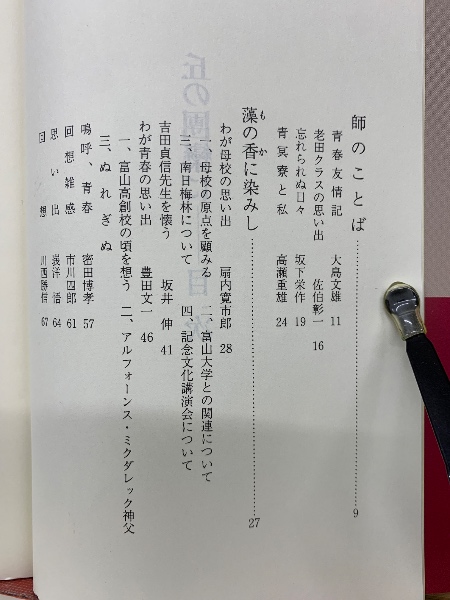 師のことば……9
青春友情記 大島文雄 11
老田クラスの思い出 佐伯彰一 16
忘れられぬ日々 坂下栄作 19
青冥寮と私 高瀬重雄 24
藻の香に染みし……27
も か
わが母校の思い出 扇内寛市郎 28
一、母校の原点を顧みる 二、富山大学との関連について
三、南日梅林について 四、記念文化講演会について
吉田貞信先生を懐う 坂井伸 41
わが青春の思い出 豊田文一 46
一、富山高創校の頃を想う 二、アルフォーンス・ミクダレック神父
三、ぬれぎぬ
嗚呼、青春 密田博孝 57
回想雑感 市川四郎 61
思い出 洋悟 64
回想 川西勝信 67